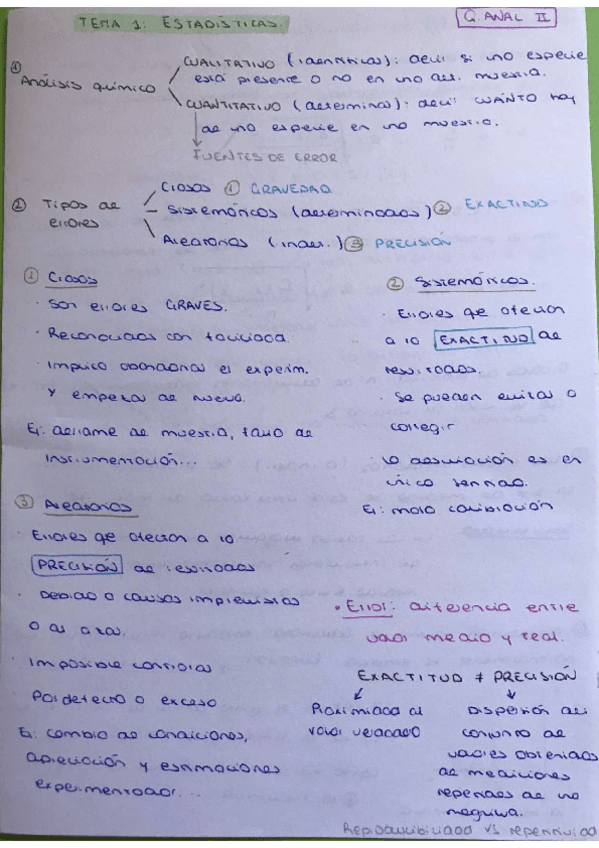 TEMA 1: ESTADÍSTICAS.
Q. ANAL II
① Análisis químico
CUALITATIVO (identificas): decir si una especie
está presente o no en una det. muestra.
CUANTITATIVO (determinas): decir CUÁNTO hay
de una especie en una muestra.
FUENTES DE ERROR
② Tipos de errores
Crasos ① GRAVEDAD
Sistemáticos (determinados) ② EXACTITUD
Aleatorios (indet.) ③ PRECISIÓN
① Crasos
· Son errores GRAVES.
· Reconocidos con facilidad.
· Implica abandonar el experim.
y empezar de nuevo.
Ej: derrame de muestra, fallo de
instrumentación...
② Sistemáticos.
· Errores que afectan
a la EXACTITUD de
resultados.
· Se pueden evitar o
corregir
· La desviación es en
único sentido.
Ej: mala calibración
③ Aleatorios
· Errores que afectan a la
PRECISIÓN de resultados
· Debido a causas imprevistas
o al azar.
· Imposible corregirlas
· Por defecto o exceso
Ej: cambio de condiciones,
apreciación y estimaciones
experimentador...
• Error: diferencia entre
valor medio y real.
EXACTITUD ≠ PRECISIÓN
Proximidad al
valor verdadero
Dispersión del
conjunto de
valores obtenidos
de mediciones
repetidas de una
magnitud.
Reproducibilidad vs repetitividad